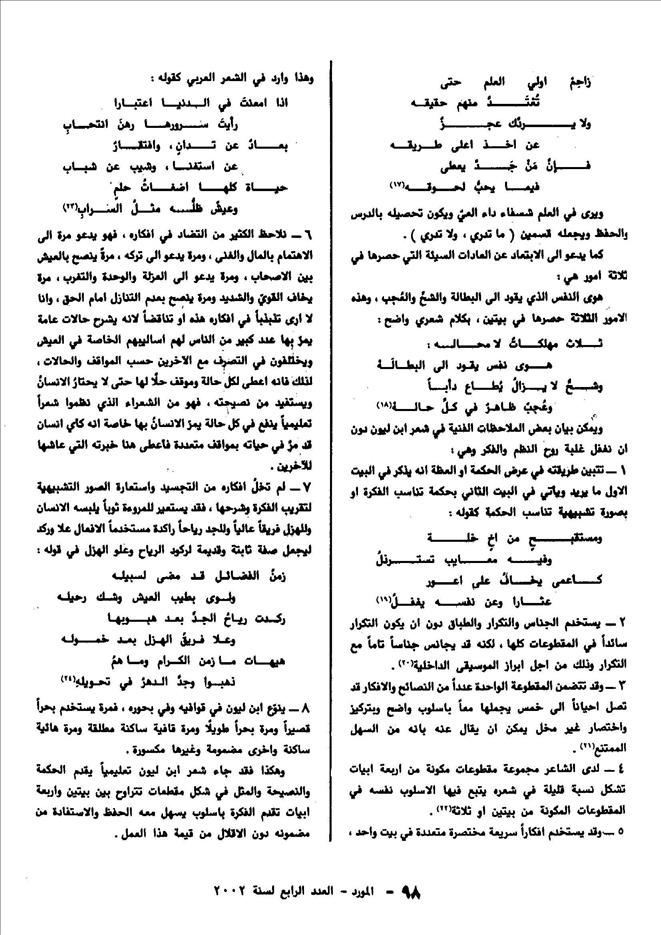 زاحِمْ اولي العلم حتى
تُعْتَدَّ منهم حقيقه
ولا يرنك عجزٌ
عن اخذ اعلى طريقه
فإنَّ مَنْ جَدَّ يعطى
فيما يحبُّ لحوقه(١٧)
ويرى في العلم شسفاء داء العيّ ويكون تحصيله بالدرس
والحفظ ويجعله قسمين ( ما تدري ، ولا تدري ) .
كما يدعو الى الابتعاد عن العادات السيئة التي حصرها في
ثلاثة امور هي :
هوى النفس الذي يقود الى البطالة والشحُّ والعُجب ، وهذه
الامور الثلاثة حصرها في بيتين ، بكلام شعري واضح :
ثلاث مهلكاتُ لا محاله :
هوى نفس يقود الى البطالة
وشحُّ لا يزالُ يُطاع دأباً
وعُجبٌ ظاهرُ في كلُّ حالة(١٨)
ويمكن بيان بعض الملاحظات الفنية في شعر ابن ليون دون
ان نغفل غلبة روح النظم والفكر وهي :
١ ــ تتبين طريقته في عرض الحكمة او العظة انه يذكر في البيت
الاول ما يريد ويأتي في البيت الثاني بحكمة تناسب الفكرة او
بصورة تشبيهية تناسب الحكمة كقوله :
ومستقبحٍ من اخٍ خلة
وفيه معايب تسترذلُ
كاعمى يخافُ على اعور
عثارا وعن نفسه يغفلُ(١٩)
٢ ــ يستخدم الجناس والتكرار والطباق دون ان يكون التكرار
سائداً في المقطوعات كلها ، لكنه قد يجانس جناساً تاماً مع
التكرار وذلك من اجل ابراز الموسيقى الداخلية(٢٠) .
٣ ــ وقد تتضمن المقطوعة الواحدة عدداً من النصائح والافكار قد
تصل احياناً الى خمس يجملها معاً باسلوب واضح وبتركيز
واختصار غير مخل يمكن ان يقال عنه بانه من السهل
الممتنع(٢١) .
٤ ــ لدى الشاعر مجموعة مقطوعات مكونة من اربعة ابيات
تشكل نسبة قليلة في شعره يتبع فيها الاسلوب نفسه في
المقطوعات المكونة من بيتين او ثلاثة(٢٢) .
٥ ــ وقد يستخدم افكاراً سريعة مختصرة متعددة في بيت واحد ،
وهذا وارد في الشعر العربي كقوله :
اذا امعنتَ في الدنيا اعتبارا
رأيتَ سرورها رهنَ انتحابِ
بعادُ عن تدانٍ ، وافتقارُ
عن استغنا ، وشيب عن شباب
حياة كلها اضغاثُ حلمٍ
وعيشٌ ظلُّه مثلُ السرابِ(٢٣)
٦ ــ نلاحظ الكثير من التضاد في افكاره ، فهو يدعو مرة الى
الاهتمام بالمال والغنى ، ومرة يدعو الى تركه ، مرةً ينصح بالعيش
بين الاصحاب ، ومرة يدعو الى العزلة والوحدة والتغرب ، مرة
يخاف القويّ والشديد ومرة ينصح بعدم التنازل امام الحق ، وانا
لا ارى تذبذباً في افكاره هذه او تناقضاً لانه يشرح حالات عامة
يمرّ بها عدد كبير من الناس لهم اساليبهم الخاصة في العيش
ويختلفون في التصرف مع الآخرين حسب المواقف والحالات ،
لذلك فانه اعطى لكل حالة وموقف حلًا لها حتى لا يحتارُ الانسانُ
ويستفيد من نصيحته ، فهو من الشعراء الذي نظموا شعراً
تعليمياً ينفع في كل حالة يمرّ الانسانُ بها خاصة انه كأي انسان
قد مرَّ في حياته بمواقف متعددة فأعطى هنا خبرته التي عاشها
للآخرين .
٧ ــ لم تخلُ افكاره من التجسيد واستعارة الصور التشبيهية
لتقريب الفكرة وشرحها ، فقد يستعير للمروءة ثوباً يلبسه الانسان
وللهزل فريقاً عالياً وللجد رياحاً راكدة مستخدماً الافعال علا وركد
ليجعل صفة ثابتة وقديمة لركود الرياح وعلو الهزل في قوله :
زمنُ الفضائل قد مضى لسبيله
ولوى بطيب العيش وشك رحيله
ركدت رياحُ الجدِّ بعد هبوبها
وعلا فريقُ الهزل بعد خموله
هيهات ما زمن الكرام وما همُ
ذهبوا وجدُّ الدهرُ في تحويلهِ(٢٤)
٨ ــ ينوّع ابن ليون في قوافيه وفي بحوره ، فمرة يستخدم بحراً
قصيراً ومرة بحراً طويلًا ومرة قافية ساكنة مطلقة ومرة هائية
ساكنة واخرى مضمومة وغيرها مكسورة .
وهكذا فقد جاء شعر ابن ليون تعليمياً يقدم الحكمة
والنصيحة والمثل في شكل مقطعات تتراوح بين بيتين واربعة
ابيات تقدم الفكرة باسلوب يسهل معه الحفظ والاستفادة من
مضمونه دون الاقلال من قيمة هذا العمل .
٩٨ - المورد - العدد الرابع لسنة ٢٠٠٢